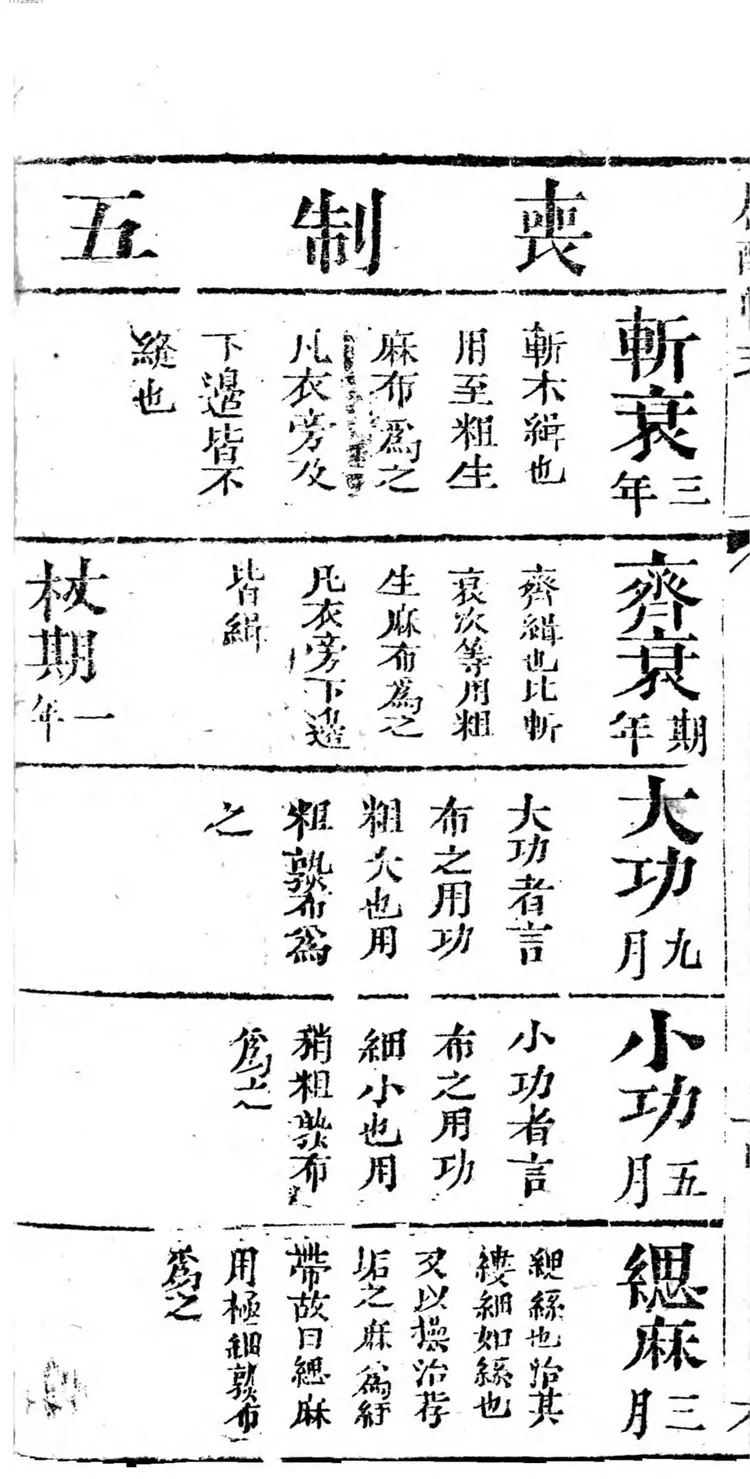 喪制五
斬衰三年
斬不緝也
用至粗生
麻布為之
凡衣旁及
下邉皆不
縫也
齊衰期年
齊緝也比斬
衰次等用粗
生麻布為之
凡衣旁下邉
皆緝
杖期一年
大功九月
大功者言
布之用功
粗大也用
粗熟布為
之
小功五月
小功者言
布之用功
細小也用
稍粗熟布
為之
緦麻三月
緦絲也治其
縷細如絲也
又以澡治莩
垢之麻為絰
帶故曰緦麻
用極細熟布
為之